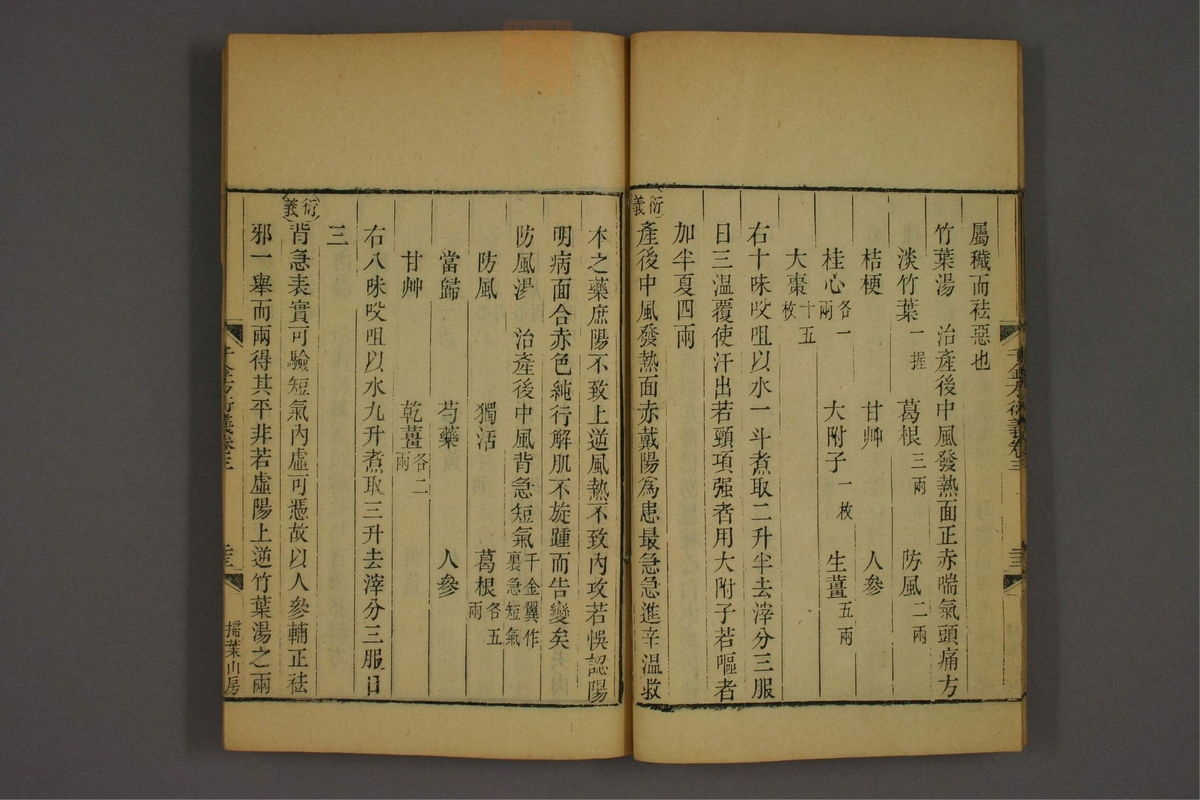 屬穢而祛惡也
竹葉湯 治產後中風發熱面正赤喘氣頭痛方
淡竹葉一握 葛根三兩 防風二兩
桔梗 甘艸 人參
桂心各一兩 大附子一枚 生薑五兩
大棗十五枚
右十味㕮咀以水一斗煮取二升半去滓分三服
日三溫覆使汗出若頸項强者用大附子若嘔者
加半夏四兩
衍義 產後中風發熱面赤戴陽為患最急急進辛溫救
本之藥庶陽不致上逆風熱不致內攻若悞認陽
明病面合赤色純行解肌不旋踵而告變矣
防風湯 治產後中風背急短氣千金翼作裏急短氣
防風 獨活 葛根各五兩
當歸 芍藥 人參
甘艸 乾薑各二兩
右八味㕮咀以水九升煮取三升去滓分三服日
三
衍義 背急表實可驗短氣內虛可憑故以人參輔正祛
邪一舉而兩得其平非若虛陽上逆竹葉湯之兩
千金方衍義卷三
掃葉山房